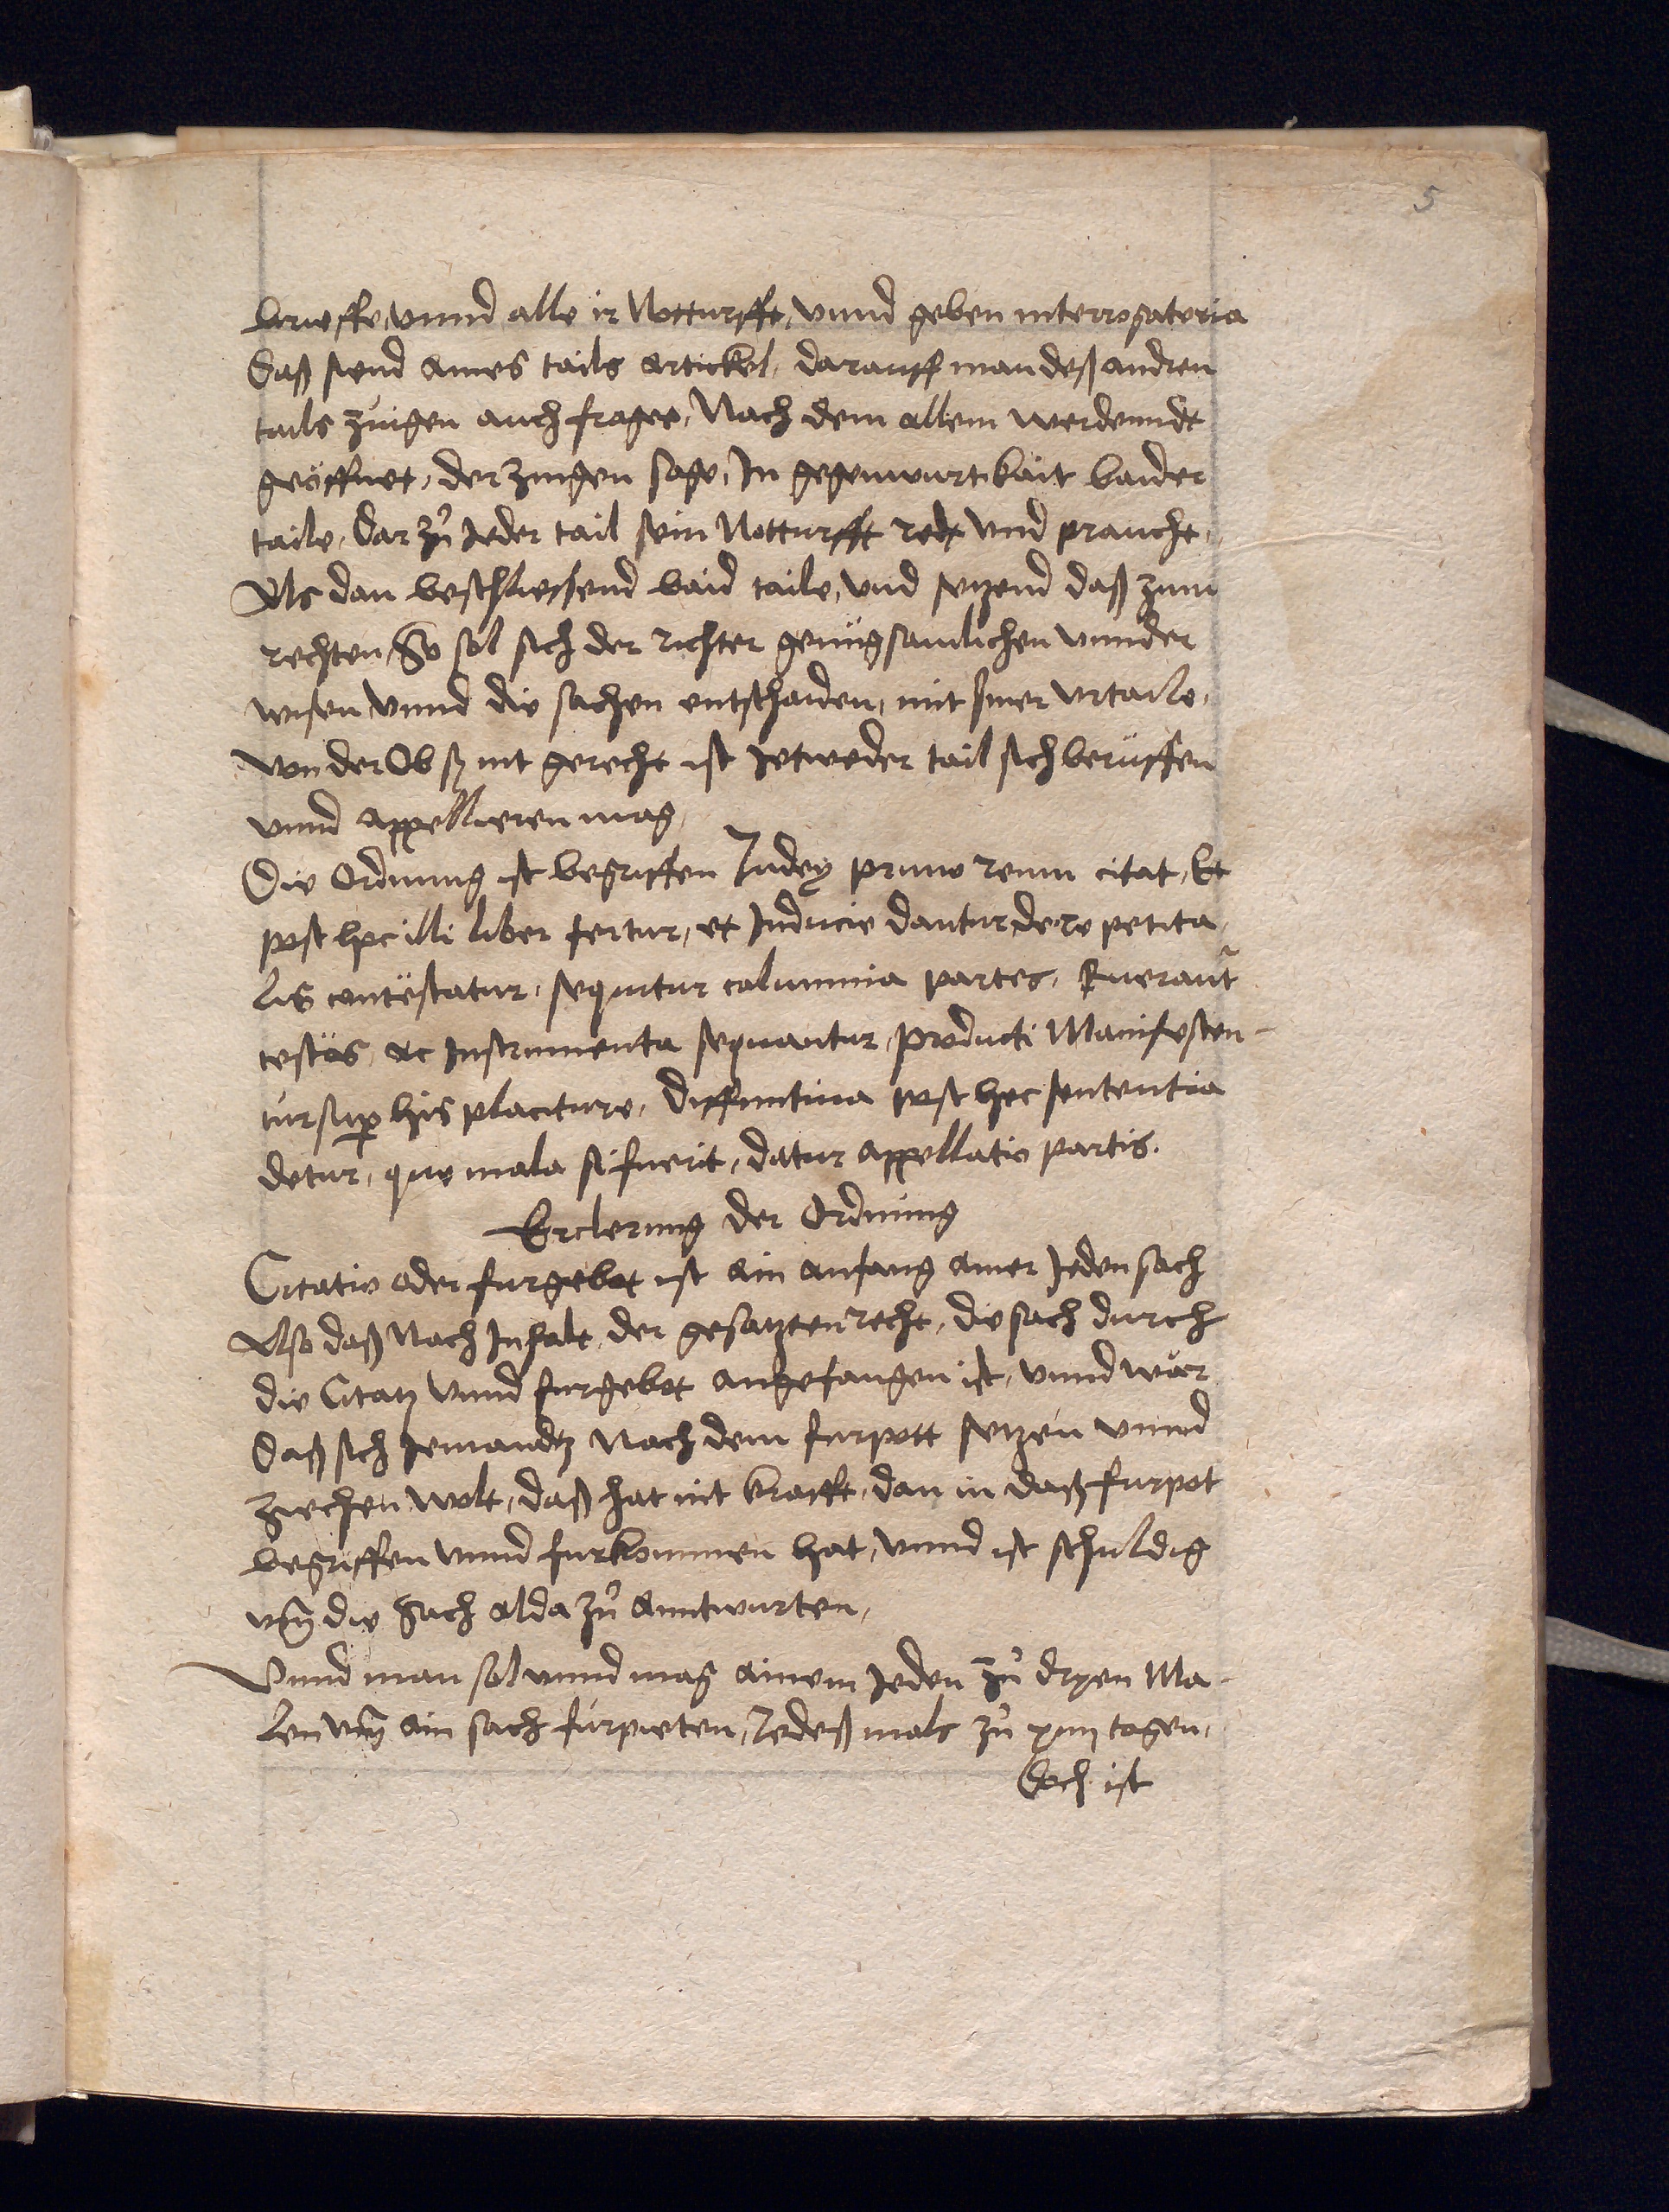 5
brieffe, vnnd alle ir Notturfft, vnnd geben interrogatoria
Daß siend aines tails artickel, darauff man deß andren
tails zúigen auch frage, Nach dem allem werdenndt
geöffnet, der zúigen sage, In gegenwurtikait baider
taile, Dar zů Jeder tail sein Notturfft redt vnd praucht,
Als dan beschliessend baid taile, vnd setzend daß zum
rechten, So sol sich der richter genúgsamlichen vnnder
wisen, vnnd die sachen entschaiden, mit siner vrtaile,
von der Ob sy nit gerecht ist Jetweder tail sich berüffen
vnnd appellieren mag,
Die Ordnung ist begriffen Judex primo reum citat, Et
post hec illi liber fertur, et Inducie dantur de re petita,
Lis contestatur, sequitur calumnia partes,
testes, ac Instrumenta sequantur, producti Manifesten-
tur sup his placiture, Diffinitiua post hec sententia
detur, que mala si fuerit, datur appellatio partis.
Erclerung der Ordnúng
Citatio oder furgebot ist ain anfang ainer Jeden sach
Also daß Nach Inhalt, der gesatzten recht, die sach durch
die Citatz vnnd furgebot angefangen ist, vnnd wär
Daß sich Jemandtz Nach dem furpott setzen vnnd
ziechen wolt, daß hat nit krafft, dan in daß furpot
begriffen vnnd furkommen hat, vnnd ist schuldig
vm̃ die Sach alda zů anntwurten,
Vnnd man sol vnnd mag ainem Jeden zů dryen Ma-
len vm̃ ain sach fúrpieten, Jedeß mals zů xiiij tagen,
Doch ist